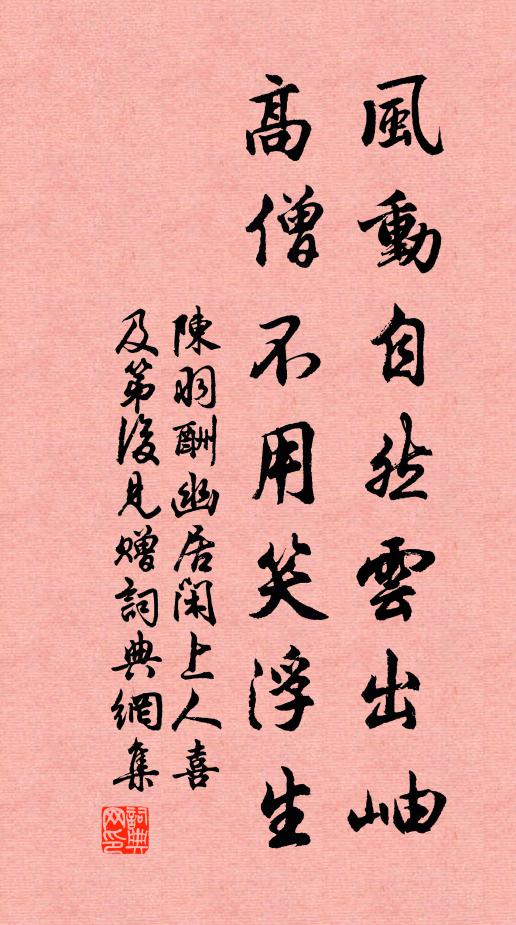 風動自然雲出岫
高僧不用笑浮生
陳羽酬幽居閑上人喜
及第後見贈詞典網集
詞典网印